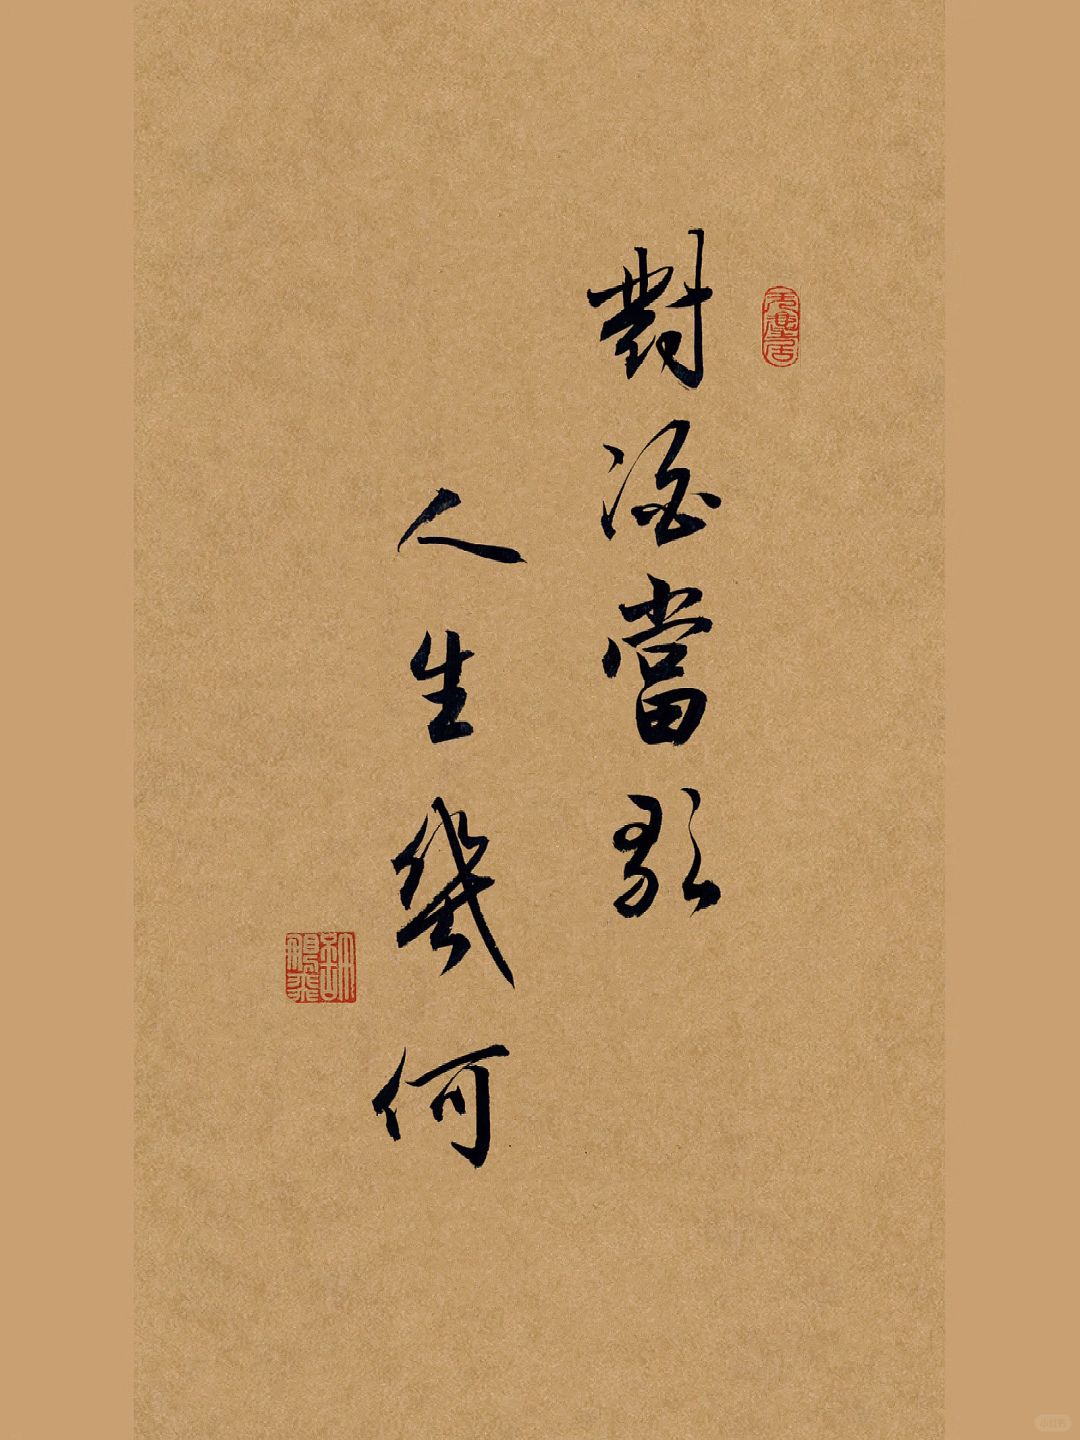 對酒當歌
人生幾何